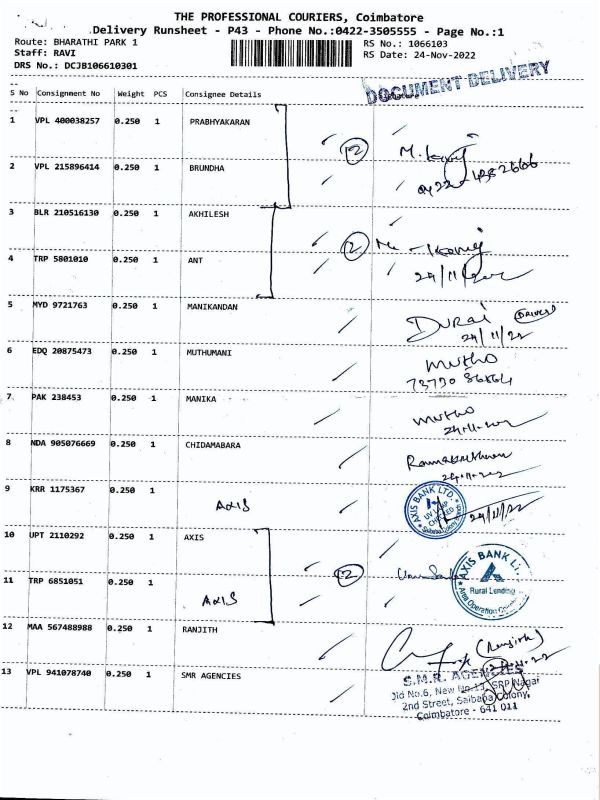 THE PROFESSIONAL COURIERS, Coimbatore
Delivery Runsheet - P43 - Phone No.:0422-3505555 - Page No.:1
Route: BHARATHI PARK 1 RS No.: 1066103
Staff: RAVI RS Date: 24-Nov-2022
DRS No.: DCJB106610301
DOCUMENT DELIVERY
S No Consignment No Weight PCS Consignee Details
1 VPL 400038257 0.250 1 PRABHYAKARAN
2 VPL 215896414 0.250 1 BRUNDHA 12
3 BLR 210516130 0.250 1 AKHILESH
4 TRP 5801010 0.250 1 ANT 2
24/11/2022
5 MYD 9721763 0.250 1 MANIKANDAN DURAI (DRIVER)
24/11/22
6 EDQ 20875473 0.250 1 MUTHUMANI Mutho
7. PAK 238453 0.250 1 MANIKA Mutho
24-11-2022
8 NDA 905076669 0.250 1 CHIDAMABARA
24-11-2022
9 KRR 1175367 0.250 1 AXIS AXIS BANK LTD. UV LAMP CHECKED 24/11/22
10 UPT 2110292 0.250 1 AXIS
2 AXIS BANK
11 TRP 6851051 0.250 1 AXIS Rural Lending
12 MAA 567488988 0.250 1 RANJITH (Ranjith)
24-11-22
13 VPL 941078740 0.250 1 SMR AGENCIES S.M.R. AGENCIES
Old No.6, New No.13, SRP Nagar
2nd Street, Saibaba Colony,
Coimbatore - 641 011